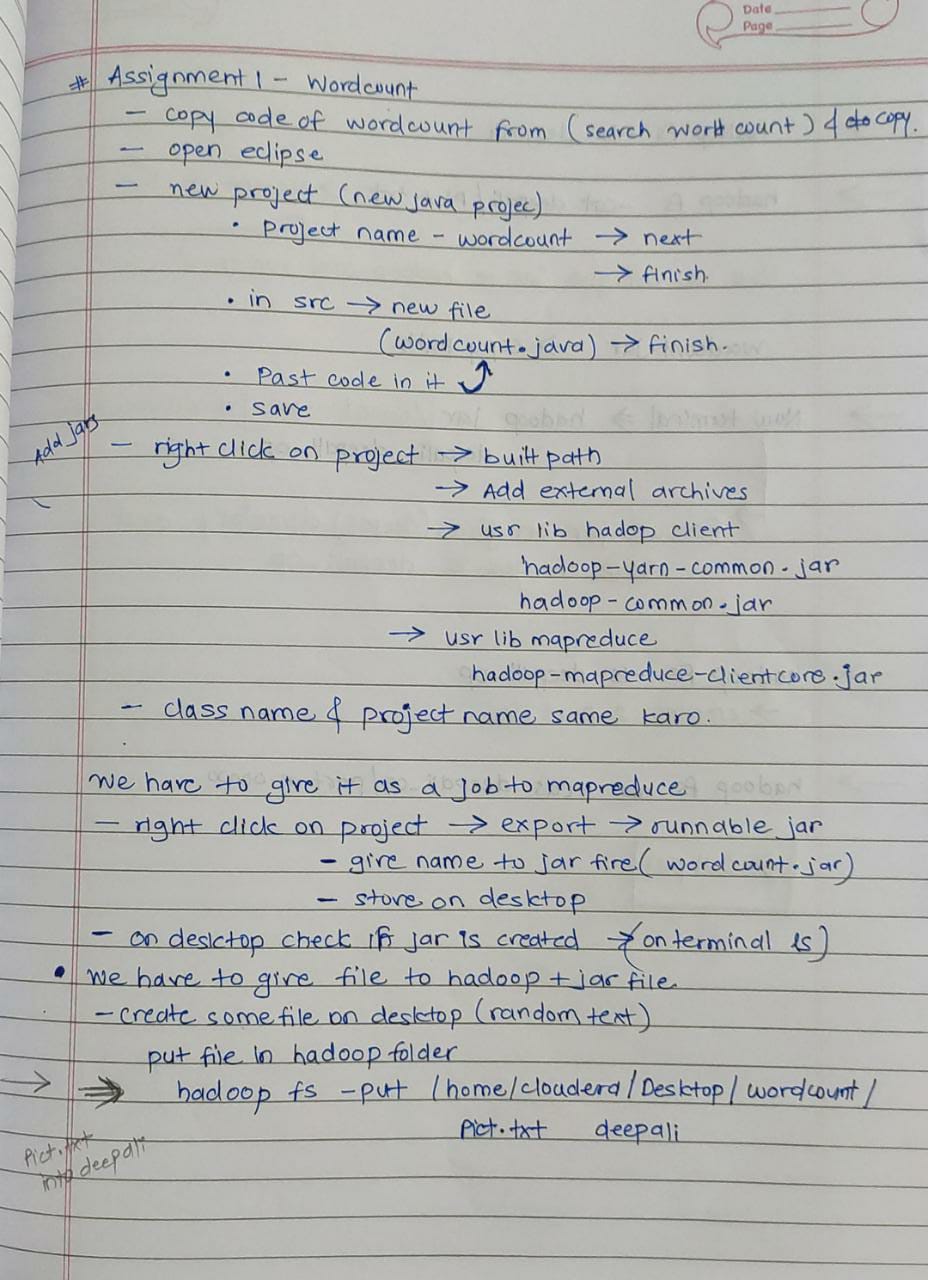 Date
Page
# Assignment 1 - Wordcount
- copy code of wordcount from (search word count) & copy.
- open eclipse
- new project (new java projec)
• Project name - wordcount → next
→ finish.
• in src → new file
(wordcount.java) → finish.
• Past code in it
• save
Add jars
- right click on project → built path
→ Add external archives
→ usr lib hadop client
hadoop-yarn-common.jar
hadoop-common.jar
→ usr lib mapreduce
hadoop-mapreduce-clientcore.jar
- class name & project name same karo.
we have to give it as a job to mapreduce
- right click on project → export → runnable jar
- give name to jar fire (wordcount.jar)
- store on desktop
- on desktop check if jar is created → (on terminal ls)
• we have to give file to hadoop + jar file
- create some file on desktop (random text)
put file in hadoop folder
→ ⇒ hadoop fs -put /home/cloudera/Desktop/wordcount/
Pict.txt deepali
Pict.txt
into deepali